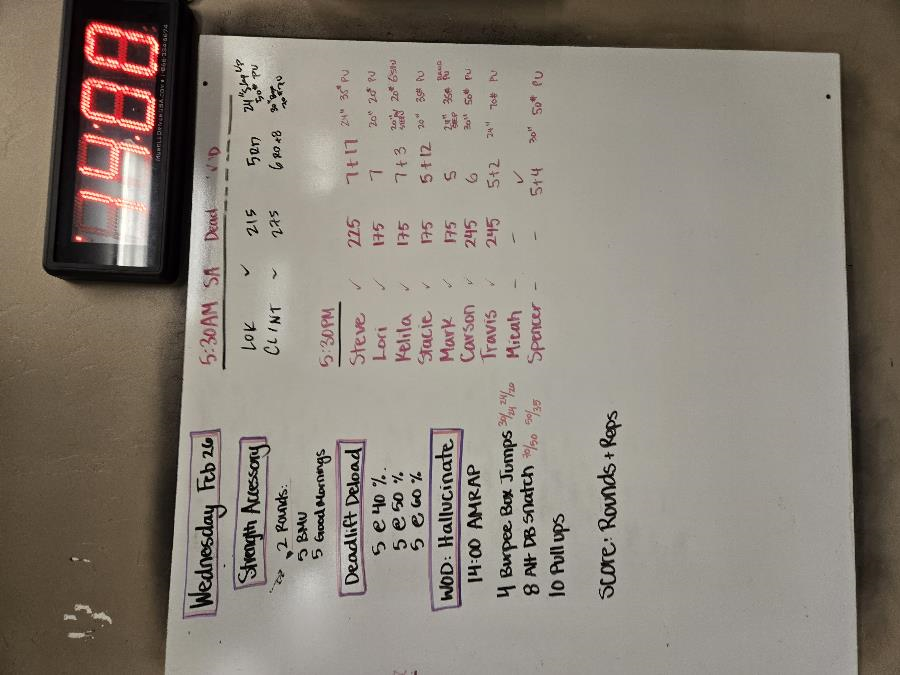 Wednesday Feb 26
Strength Accessory
2 Rounds:
5 BMU
5 Good Mornings
Deadlift Deload
5 @ 40 %
5 @ 50 %
5 @ 60 %
WOD: Hallucinate
14:00 AMRAP
4 Burpee Box Jumps 30/24 24/20
8 Alt DB Snatch 70/50 50/35
10 Pull ups
Score: Rounds + Reps
5:30AM SA Dead
LOK ✓ 215 5RD 24" Step UP 50# PU
CLINT ~ 275 6 RD+8
5:30PM
Steve ✓ 225 7+17 24" 35# PU
Lori ✓ 175 7 20" 20# PU
Kelila ✓ 175 7+3 20" 20#
Stacie ✓ 175 5+12 20" 35# PU
Mark ✓ 175 5 24" STEP 35# BAND PU
Carson ✓ 245 6 30" 50# PU
Travis ✓ 245 5+2 24" 70# PU
Micah - - ✓
Spencer - - 5+4 30" 50# PU